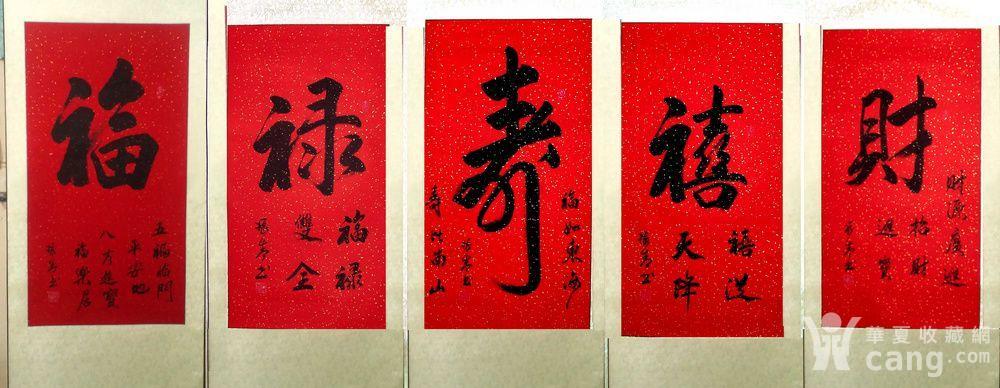 福
五福临門
平安地
八方進寶
福樂居
禄
福禄
雙全
寿
福如東海
寿比南山
禧
禧從
天降
財
財源廣進
招財
進寶
華夏收藏網
cang.com